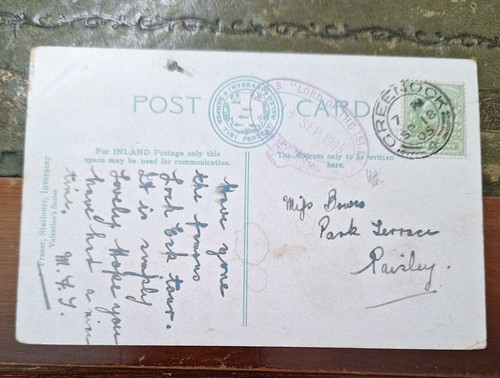 POST CARD
For INLAND Postage only this
space may be used for communication.
The Address only to be written
here.
Fraser, Stationer, Inveraray
Valentine's Series
S. "LORD OF THE ISLES"
SEP 1905
GREENOCK
Have gone
the famous
Loch Eck tour.
It is simply
lovely. Hope you
have had a nice
time.
M.
Miss Bowes
Park Terrace
Paisley.